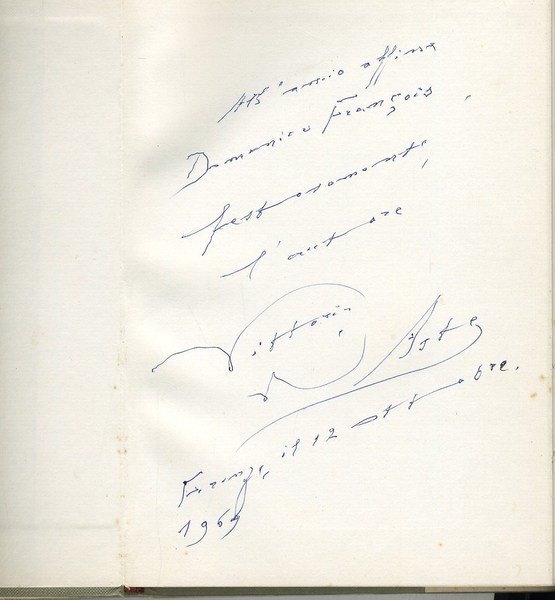 All'amico
Domenico François
festosamente,
l'autore
Vittorio
Firenze, il 12 ottobre.
1969